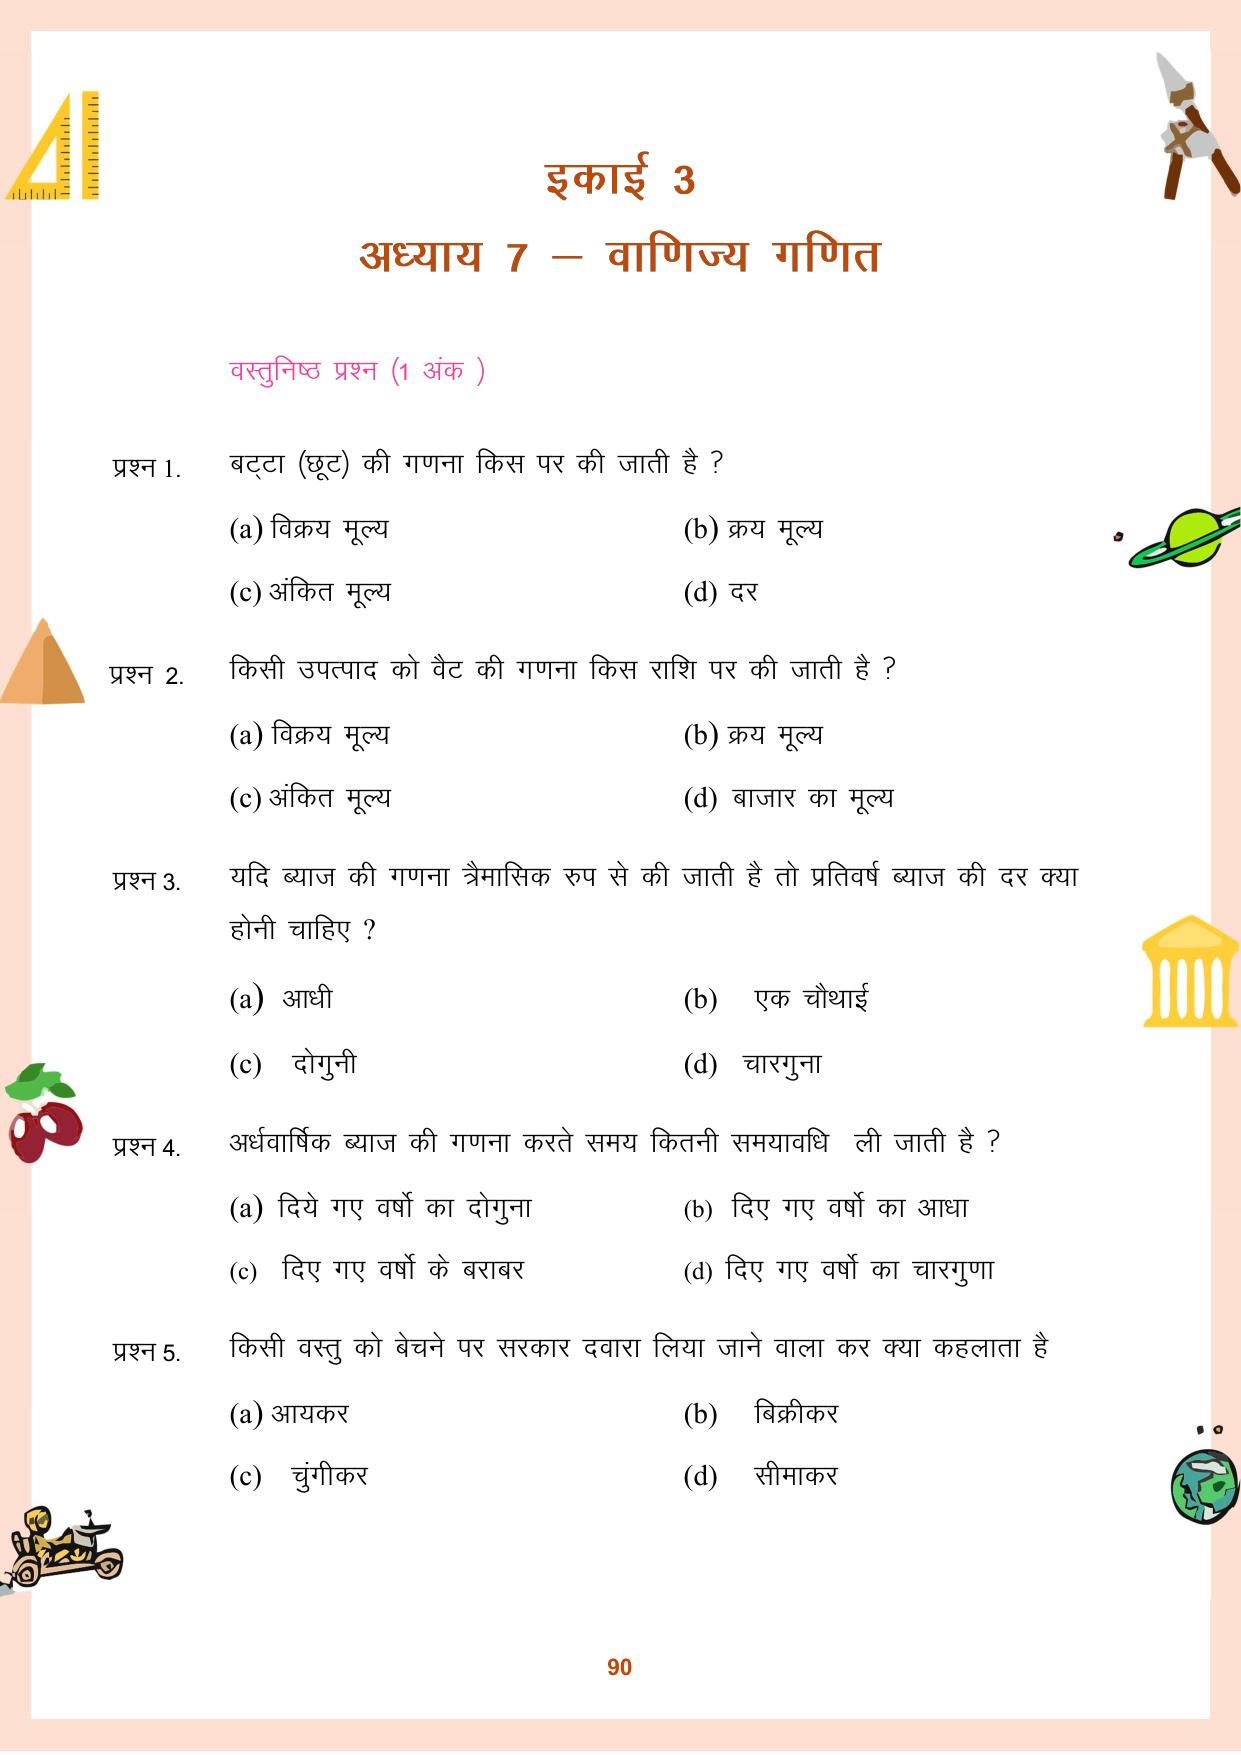 इकाई 3
अध्याय 7 – वाणिज्य गणित
वस्तुनिष्ठ प्रश्न (1 अंक )
प्रश्न 1. बट्टा (छूट) की गणना किस पर की जाती है ?
(a) विक्रय मूल्य (b) क्रय मूल्य
(c) अंकित मूल्य (d) दर
प्रश्न 2. किसी उपत्पाद को वैट की गणना किस राशि पर की जाती है ?
(a) विक्रय मूल्य (b) क्रय मूल्य
(c) अंकित मूल्य (d) बाजार का मूल्य
प्रश्न 3. यदि ब्याज की गणना त्रैमासिक रुप से की जाती है तो प्रतिवर्ष ब्याज की दर क्या
होनी चाहिए ?
(a) आधी (b) एक चौथाई
(c) दोगुनी (d) चारगुना
प्रश्न 4. अर्धवार्षिक ब्याज की गणना करते समय कितनी समयावधि ली जाती है ?
(a) दिये गए वर्षो का दोगुना (b) दिए गए वर्षो का आधा
(c) दिए गए वर्षो के बराबर (d) दिए गए वर्षो का चारगुणा
प्रश्न 5. किसी वस्तु को बेचने पर सरकार दवारा लिया जाने वाला कर क्या कहलाता है
(a) आयकर (b) बिक्रीकर
(c) चुंगीकर (d) सीमाकर
90